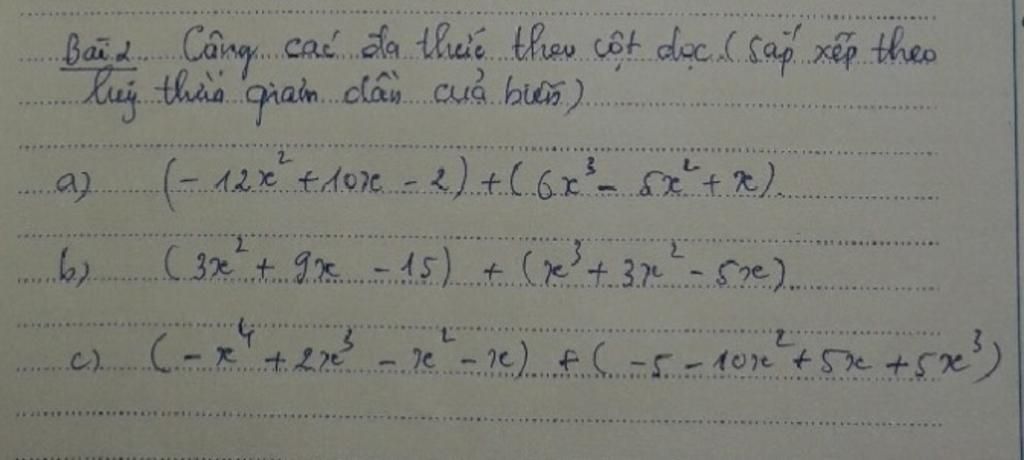 Bài 2 Cộng các đa thức theo cột dọc (sắp xếp theo
luỹ thừa giảm dần của biến)
a) (-12x² + 10x - 2) + (6x³ - 5x² + x)
b) (3x² + 9x - 15) + (x³ + 3x² - 5x)
c) (-x⁴ + 2x³ - x² - x) + (-5 - 10x² + 5x + 5x³)